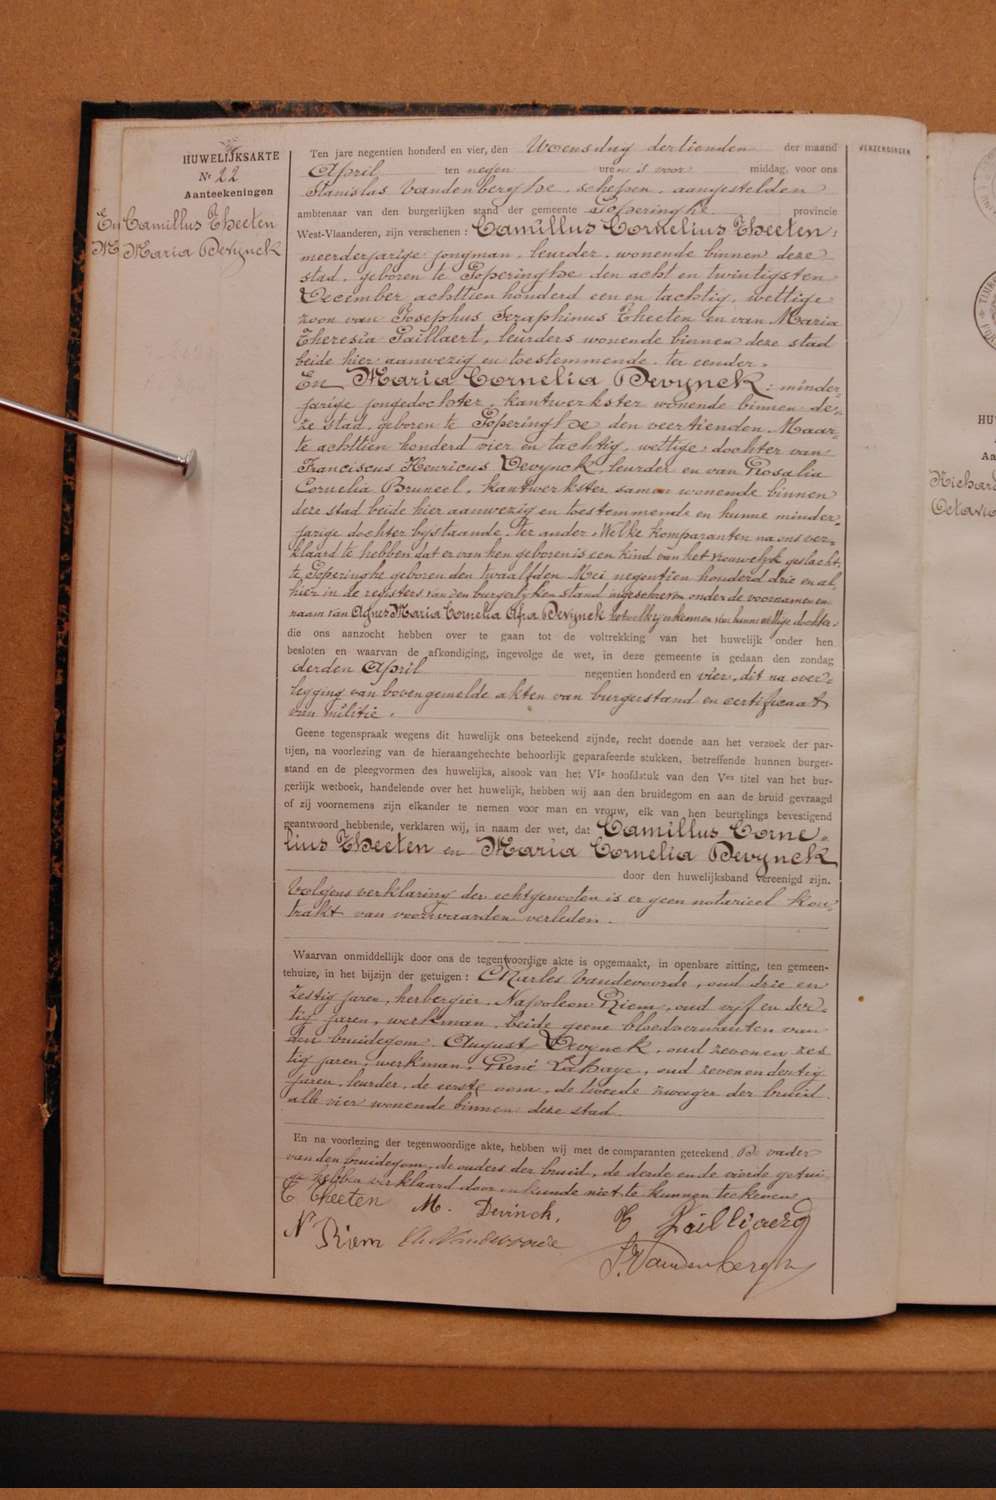 HUWELIJKSAKTE
Nr 22
Aanteekeningen
En Camillus Theeten
M Maria Devynck
Ten jare negentien honderd en vier, den Woensdag dertienden der maand
April ten negen uren 's voor middag, voor ons
Stanislas Vandenberghe, schepen, aangestelden
ambtenaar van den burgerlijken stand der gemeente Poperinghe provincie
West-Vlaanderen, zijn verschenen : Camillus Cornelius Theeten,
meerderjarige jongman, leurder, wonende binnen deze
stad, geboren te Poperinghe den acht en twintigsten
December achttien honderd een en tachtig, wettige
zoon van Josephus Seraphinus Theeten en van Maria
Theresia Paillaert, leurders wonende binnen deze stad
beide hier aanwezig en toestemmende, ter eender.
En Maria Cornelia Devynck, minder-
jarige jongedochter, kantwerkster wonende binnen de-
ze stad, geboren te Poperinghe den veertienden Maar-
te achttien honderd vier en tachtig, wettige dochter van
Franciscus Henricus Devynck, leurder en van Rosalia
Cornelia Bruneel, kantwerkster samen wonende binnen
deze stad beide hier aanwezig en toestemmende en hunne minder-
jarige dochter bijstaande. Ter ander. Welke komparanten na ons ver-
klaard te hebben dat er van hen geboren is een kind van het vrouwelyk geslacht,
te Poperinghe geboren den twaalfden Mei negentien honderd drie en al-
hier in de registers van den burgerlyken stand ingeschreven onder de voornamen en
naam van Agnes Maria Cornelia Afra Devynck hetwelk zij erkennen voor hunne wettige dochter,
die ons aanzocht hebben over te gaan tot de voltrekking van het huwelijk onder hen
besloten en waarvan de afkondiging, ingevolge de wet, in deze gemeente is gedaan den zondag
derden April negentien honderd en vier, dit na over-
legging van bovengemelde akten van burgerstand en certificaat
van militie.
Geene tegenspraak wegens dit huwelijk ons beteekend zijnde, recht doende aan het verzoek der par-
tijen, na voorlezing van de hieraangehechte behoorlijk geparafeerde stukken, betreffende hunnen burger-
stand en de pleegvormen des huwelijks, alsook van het VIe hoofdstuk van den Ven titel van het bur-
gerlijk wetboek, handelende over het huwelijk, hebben wij aan den bruidegom en aan de bruid gevraagd
of zij voornemens zijn elkander te nemen voor man en vrouw, elk van hen beurtelings bevestigend
geantwoord hebbende, verklaren wij, in naam der wet, dat Camillus Corne-
lius Theeten en Maria Cornelia Devynck
door den huwelijksband vereenigd zijn.
Volgens verklaring der echtgenooten is er geen notarieel kon-
trakt van voorwaarden verleden.
Waarvan onmiddelijk door ons de tegenwoordige akte is opgemaakt, in openbare zitting, ten gemeen-
tehuize, in het bijzijn der getuigen : Charles Vandevoorde, oud drie en
zestig jaren, herbergier, Napoleon Riem, oud vijf en der-
tig jaren, werkman, beide geene bloedverwanten van
den bruidegom. August Devynck, oud zeven en zes
tig jaren, werkman, René Lahaye, oud zeven en dertig
jaren, leurder, de eerste oom, de tweede zwager der bruid
alle vier wonende binnen deze stad.
En na voorlezing der tegenwoordige akte, hebben wij met de comparanten geteekend De vader
van den bruidegom, de ouders der bruid, de derde en de vierde getui-
ge hebben verklaard door onkunde niet te kunnen teekenen
C Theeten M. Devinck,
N Riem
S. Vandenberghe
VERZENDINGEN
Richard
Octavie